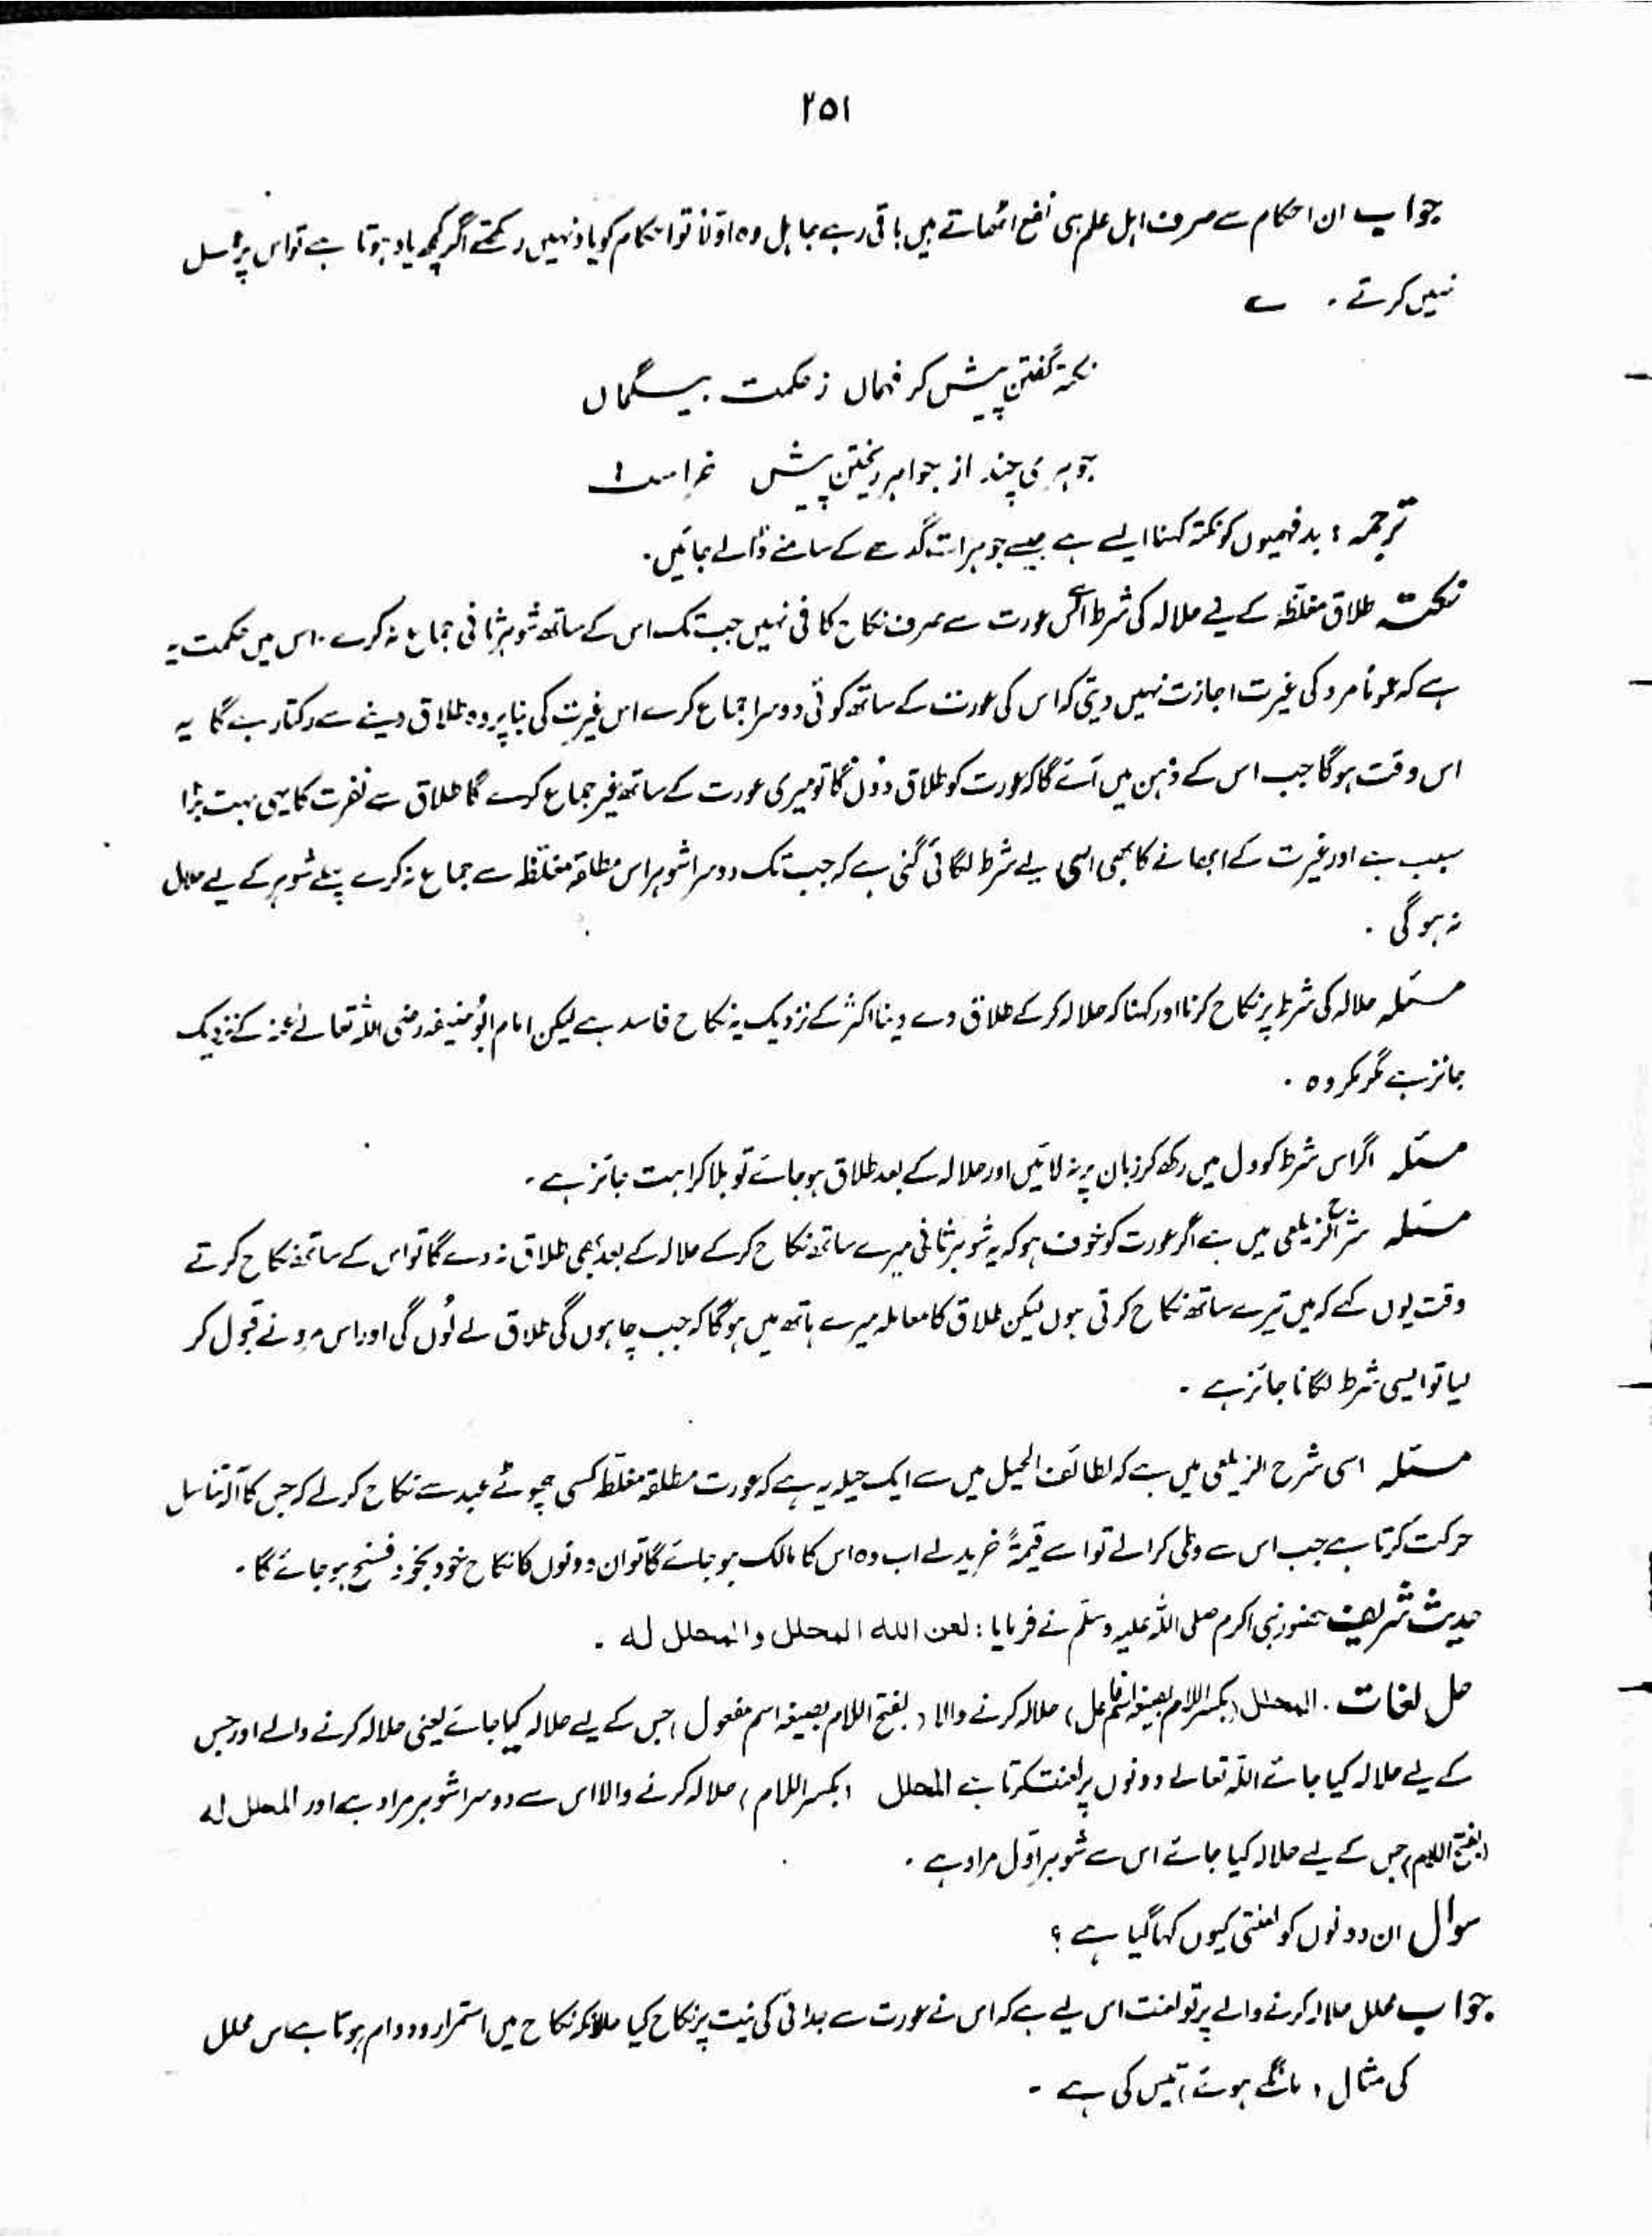 ۲۵۱
جواب ان احکام سے صرف اہل علم ہی نفع اٹھاتے ہیں باقی رہے جاہل وہ اوّلاً تو احکام کو یاد نہیں رکھتے اگر کچھ یاد ہوتا ہے تو اس پر عمل
نہیں کرتے ۔ ے
نکتہ گفتن پیش کژ فہماں ز حکمت بیگماں
جوہری چند از جواہر ریختن پیش خر است
ترجمہ : بد فہمیوں کو نکتہ کہنا ایسے ہے جیسے جوہرات گدھے کے سامنے ڈالے جائیں ۔
نکتہ طلاق مغلظہ کے لیے حلالہ کی شرط اس عورت سے صرف نکاح کافی نہیں جب تک اس کے ساتھ شوہر ثانی جماع نہ کرے ۔ اس میں حکمت یہ
ہے کہ عموماً مرد کی غیرت اجازت نہیں دیتی کہ اس کی عورت کے ساتھ کوئی دوسرا جماع کرے اس غیرت کی بنا پر وہ طلاق دینے سے رکتا رہے گا یہ
اس وقت ہوگا جب اس کے ذہن میں آئے گا کہ عورت کو طلاق دوں گا تو میری عورت کے ساتھ غیر جماع کرے گا طلاق سے نفرت کا یہی بہت بڑا
سبب ہے اور غیرت کے ابھانے کا بھی اسی لیے شرط لگائی گئی ہے کہ جب تک دوسرا شوہر اس مطلقہ مغلظہ سے جماع نہ کرے پہلے شوہر کے لیے حلال
نہ ہوگی ۔
مسئلہ حلالہ کی شرط پر نکاح کرنا اور کہنا کہ حلالہ کر کے طلاق دے دینا اکثر کے نزدیک یہ نکاح فاسد ہے لیکن امام ابُو حنیفہ رضی اللہ تعالےٰ عنہ کے نزدیک
جائز ہے مگر مکروہ ۔
مسئلہ اگر اس شرط کو دل میں رکھ کر زبان پر نہ لائیں اور حلالہ کے بعد طلاق ہو جائے تو بلا کراہت جائز ہے ۔
مسئلہ شرح الزیلعی میں ہے اگر عورت کو خوف ہو کہ یہ شوہر ثانی میرے ساتھ نکاح کر کے حلالہ کے بعد بھی طلاق نہ دے گا تو اس کے ساتھ نکاح کرتے
وقت یوں کہے کہ میں تیرے ساتھ نکاح کرتی ہوں لیکن طلاق کا معاملہ میرے ہاتھ میں ہوگا کہ جب چاہوں گی طلاق لے لُوں گی اور اس مرد نے قبول کر
لیا تو ایسی شرط لگانا جائز ہے ۔
مسئلہ اسی شرح الزیلعی میں ہے کہ لطائف الحیل میں سے ایک حیلہ یہ ہے کہ عورت مطلقہ مغلظہ کسی چھوٹے عبد سے نکاح کر لے کہ جس کا آلہ تناسل
حرکت کرتا ہے جب اس سے وطی کرالے تو اسے قیمۃً خرید لے اب وہ اس کا مالک ہو جائے گا تو ان دونوں کا نکاح خود بخود فسخ ہو جائے گا ۔
حدیث شریف حضور نبی اکرم صلی اللہ علیہ وسلّم نے فرمایا : لعن الله المحلل والمحلل له ۔
حل لغات ۔ المحلل (بکسر اللام بصیغہ اسم فاعل) حلالہ کرنے والا (بفتح اللام بصیغہ اسم مفعول) جس کے لیے حلالہ کیا جائے یعنی حلالہ کرنے والے اور جس
کے لیے حلالہ کیا جائے اللہ تعالےٰ دونوں پر لعنت کرتا ہے المحلل (بکسر اللام) حلالہ کرنے والا اس سے دوسرا شوہر مراد ہے اور المحلل لہ
(بفتح اللام) جس کے لیے حلالہ کیا جائے اس سے شوہر اوّل مراد ہے ۔
سوال ان دونوں کو لعنتی کیوں کہا گیا ہے ؟
جواب محلل حلالہ کرنے والے پر تو لعنت اس لیے ہے کہ اس نے عورت سے جدائی کی نیت پر نکاح کیا حالانکہ نکاح میں استمرار و دوام ہوتا ہے اس محلل
کی مثال (مانگے ہوئے) تیس کی ہے ۔